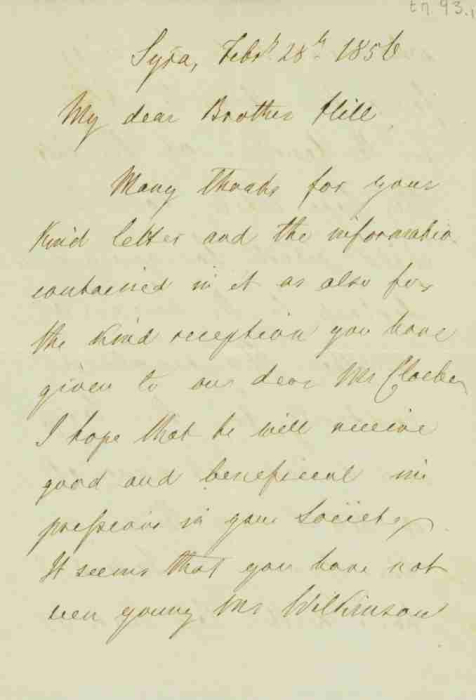 Syra, Feby 28th 1856
My dear Brother Hill
Many thanks for your
kind letter and the informatio
contained in it as also for
the kind reception you have
given to our dear Mr
I hope that he will receive
good and beneficial im
pressions in your Society.
It seems that you have not
seen young Mr Wilkinson